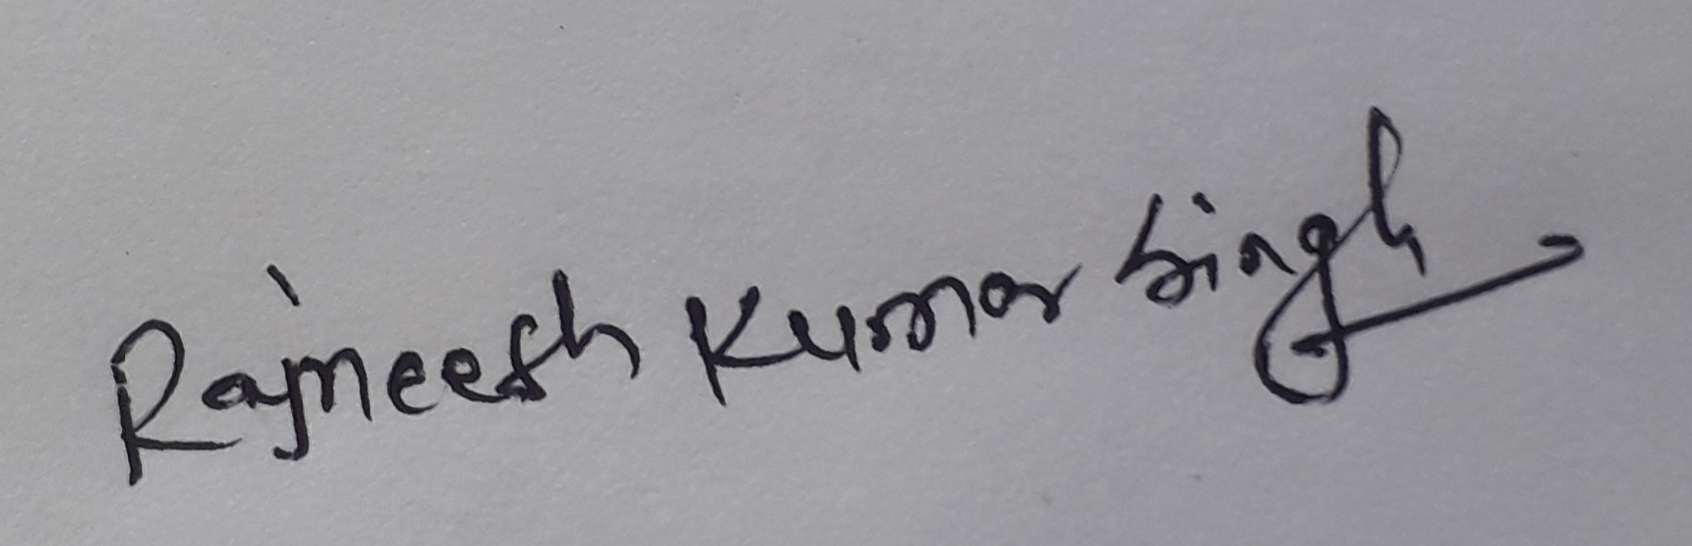 Rajneesh Kumar Singh